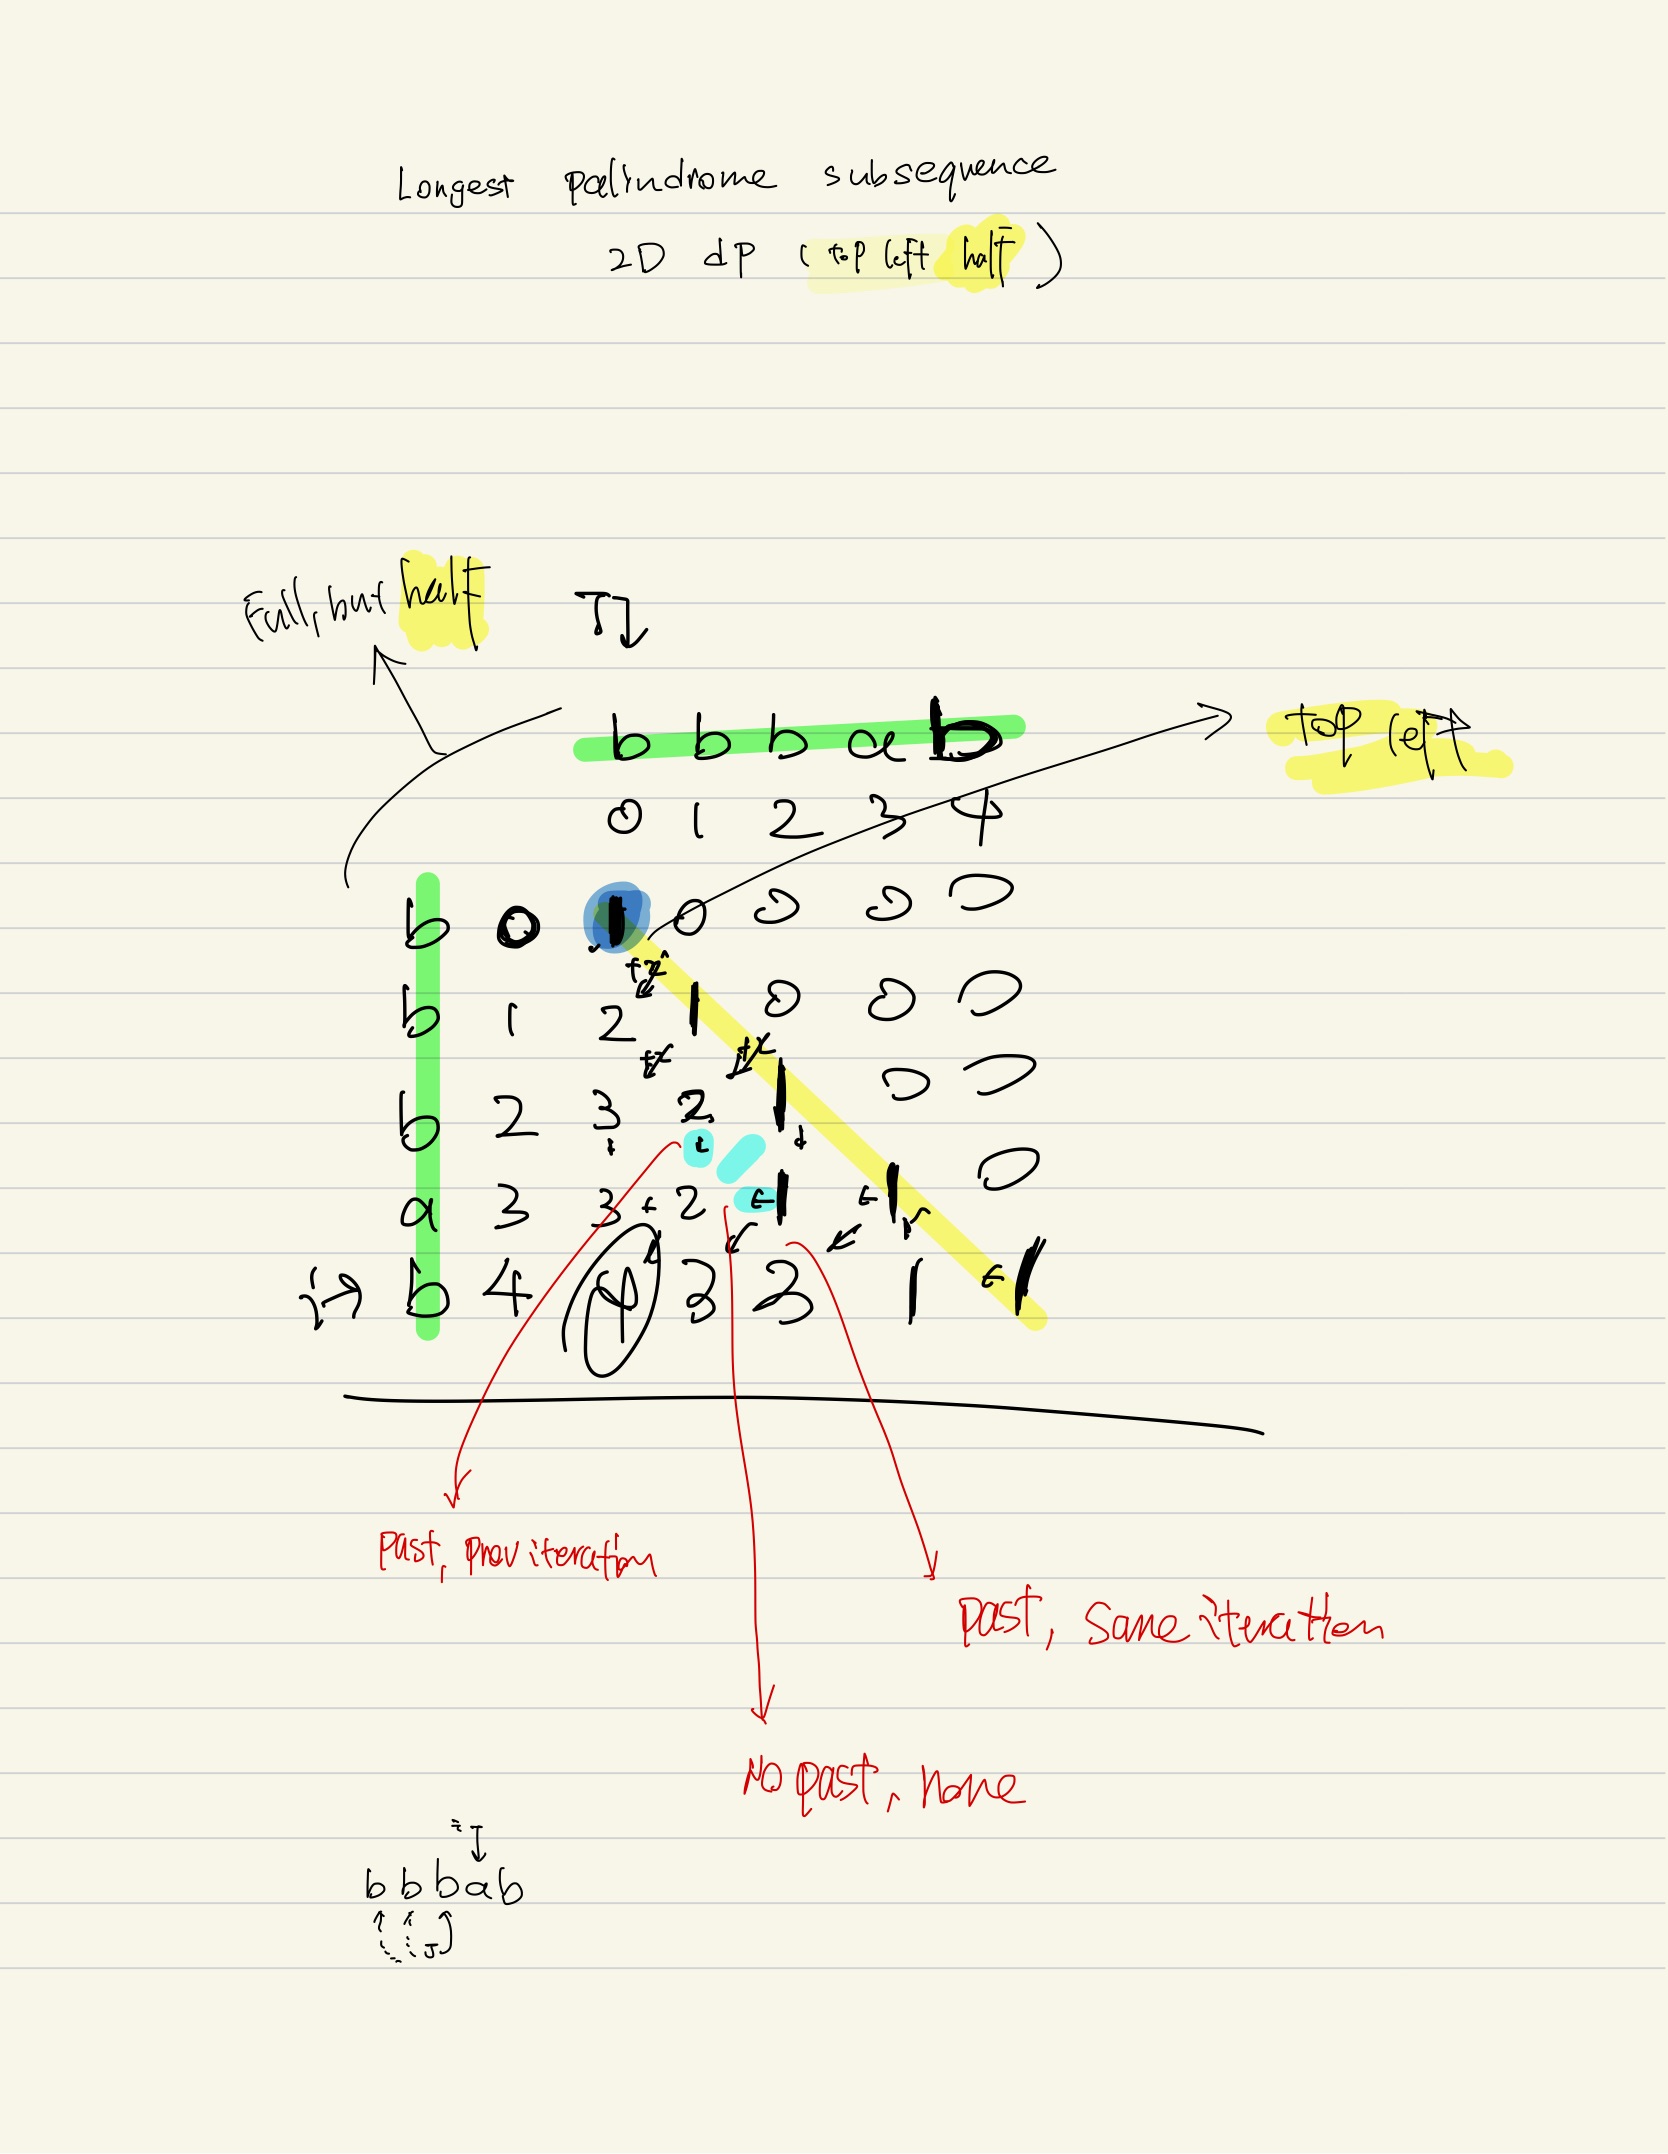 Longest palindrome subsequence
2D dp (top left half)
Full, but half
top left
b b b a b
0 1 2 3 4
b 0 1 0 0 0 0
+2
b 1 2 1 0 0 0
b 2 3 2 1 0 0
a 3 3 2 1 1 0
b 4 4 3 3 1 1
Past, prev iteration
Past, same iteration
No past, none
b b b a b